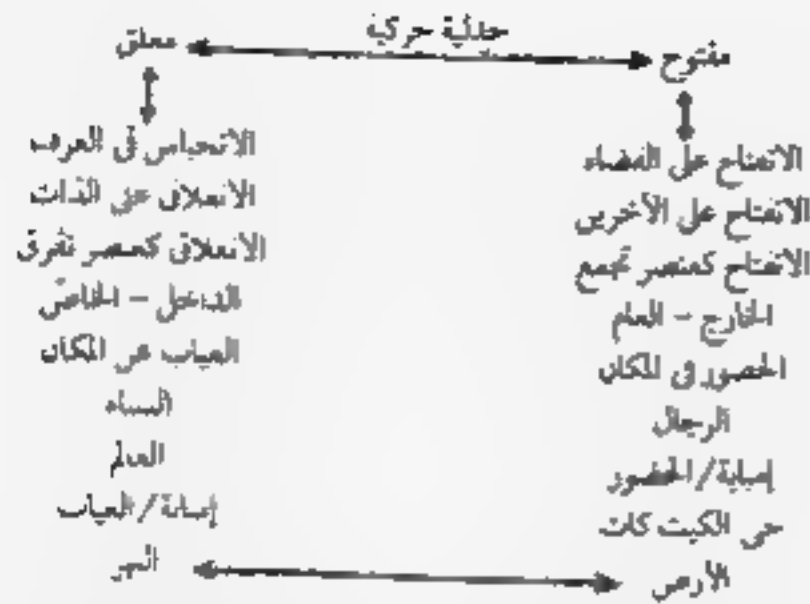 جدلية حركية
مفتوح
الانفتاح على الفضاء
الانفتاح على الآخرين
الانفتاح كعنصر تجمع
الخارج - العام
الحضور في المكان
الرجال
إمبابة/الحضور
حى الكيت كات
الأرض
مغلق
الانحباس في الغرف
الانغلاق على الذات
الانغلاق كعنصر تفرق
الداخل - الخاص
الغياب عن المكان
النساء
العالم
إمبابة/الغياب
النهر